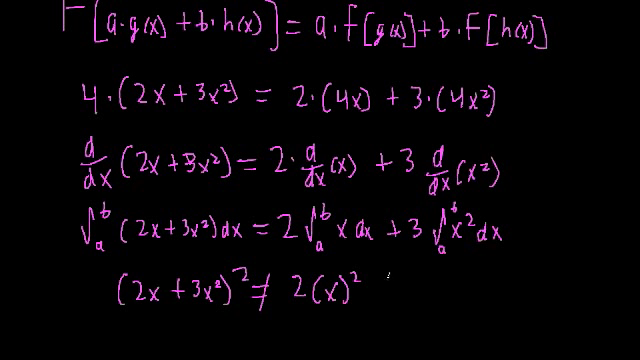 F[a·g(x) + b·h(x)] = a·F[g(x)] + b·F[h(x)]
4·(2x + 3x²) = 2·(4x) + 3·(4x²)
d/dx (2x + 3x²) = 2· d/dx (x) + 3 d/dx (x²)
∫ₐᵇ (2x + 3x²) dx = 2 ∫ₐᵇ x dx + 3 ∫ₐᵇ x² dx
(2x + 3x²)² ≠ 2(x)²